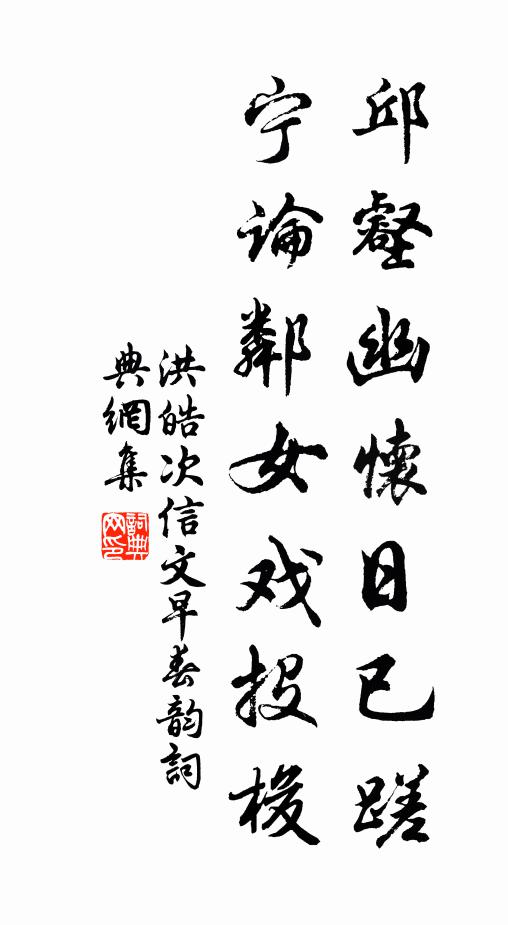 邱壑幽懷日已蹉
宁論鄰女戏投梭
洪皓次信文早春韵詞
典網集
詞典網印